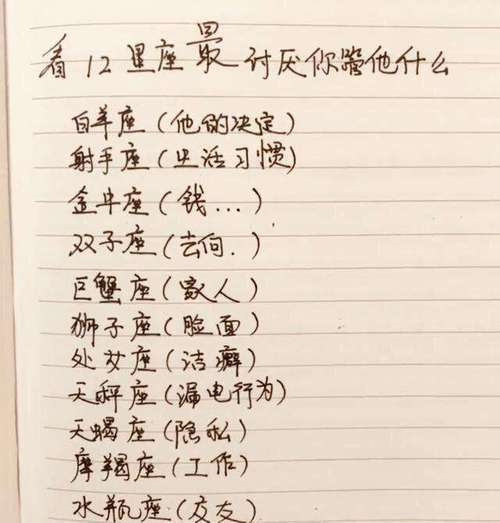 看12星座最讨厌你管他什么
白羊座(他的决定)
射手座(生活习惯)
金牛座(钱...)
双子座(去向.)
巨蟹座(家人)
狮子座(脸面)
处女座(洁癖)
天秤座(漏电行为)
天蝎座(隐私)
摩羯座(工作)
水瓶座(交友)